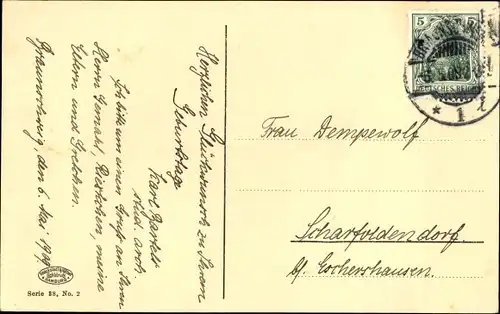 Herzlichen Glückwunsch zu Ihrem
Geburtstage
Karl Bartels
stud. arch.
Ich bitte um einen Gruß an Ihren
Herrn Gemahl, Rieckchen, meine
Eltern und Gretchen.
Braunschweig den 6. Mai 1909.
Serie 28, No. 2
5
DEUTSCHES REICH
* 1 z
Frau Dempewolf
Scharfoldendorf
b/ Eschershausen.